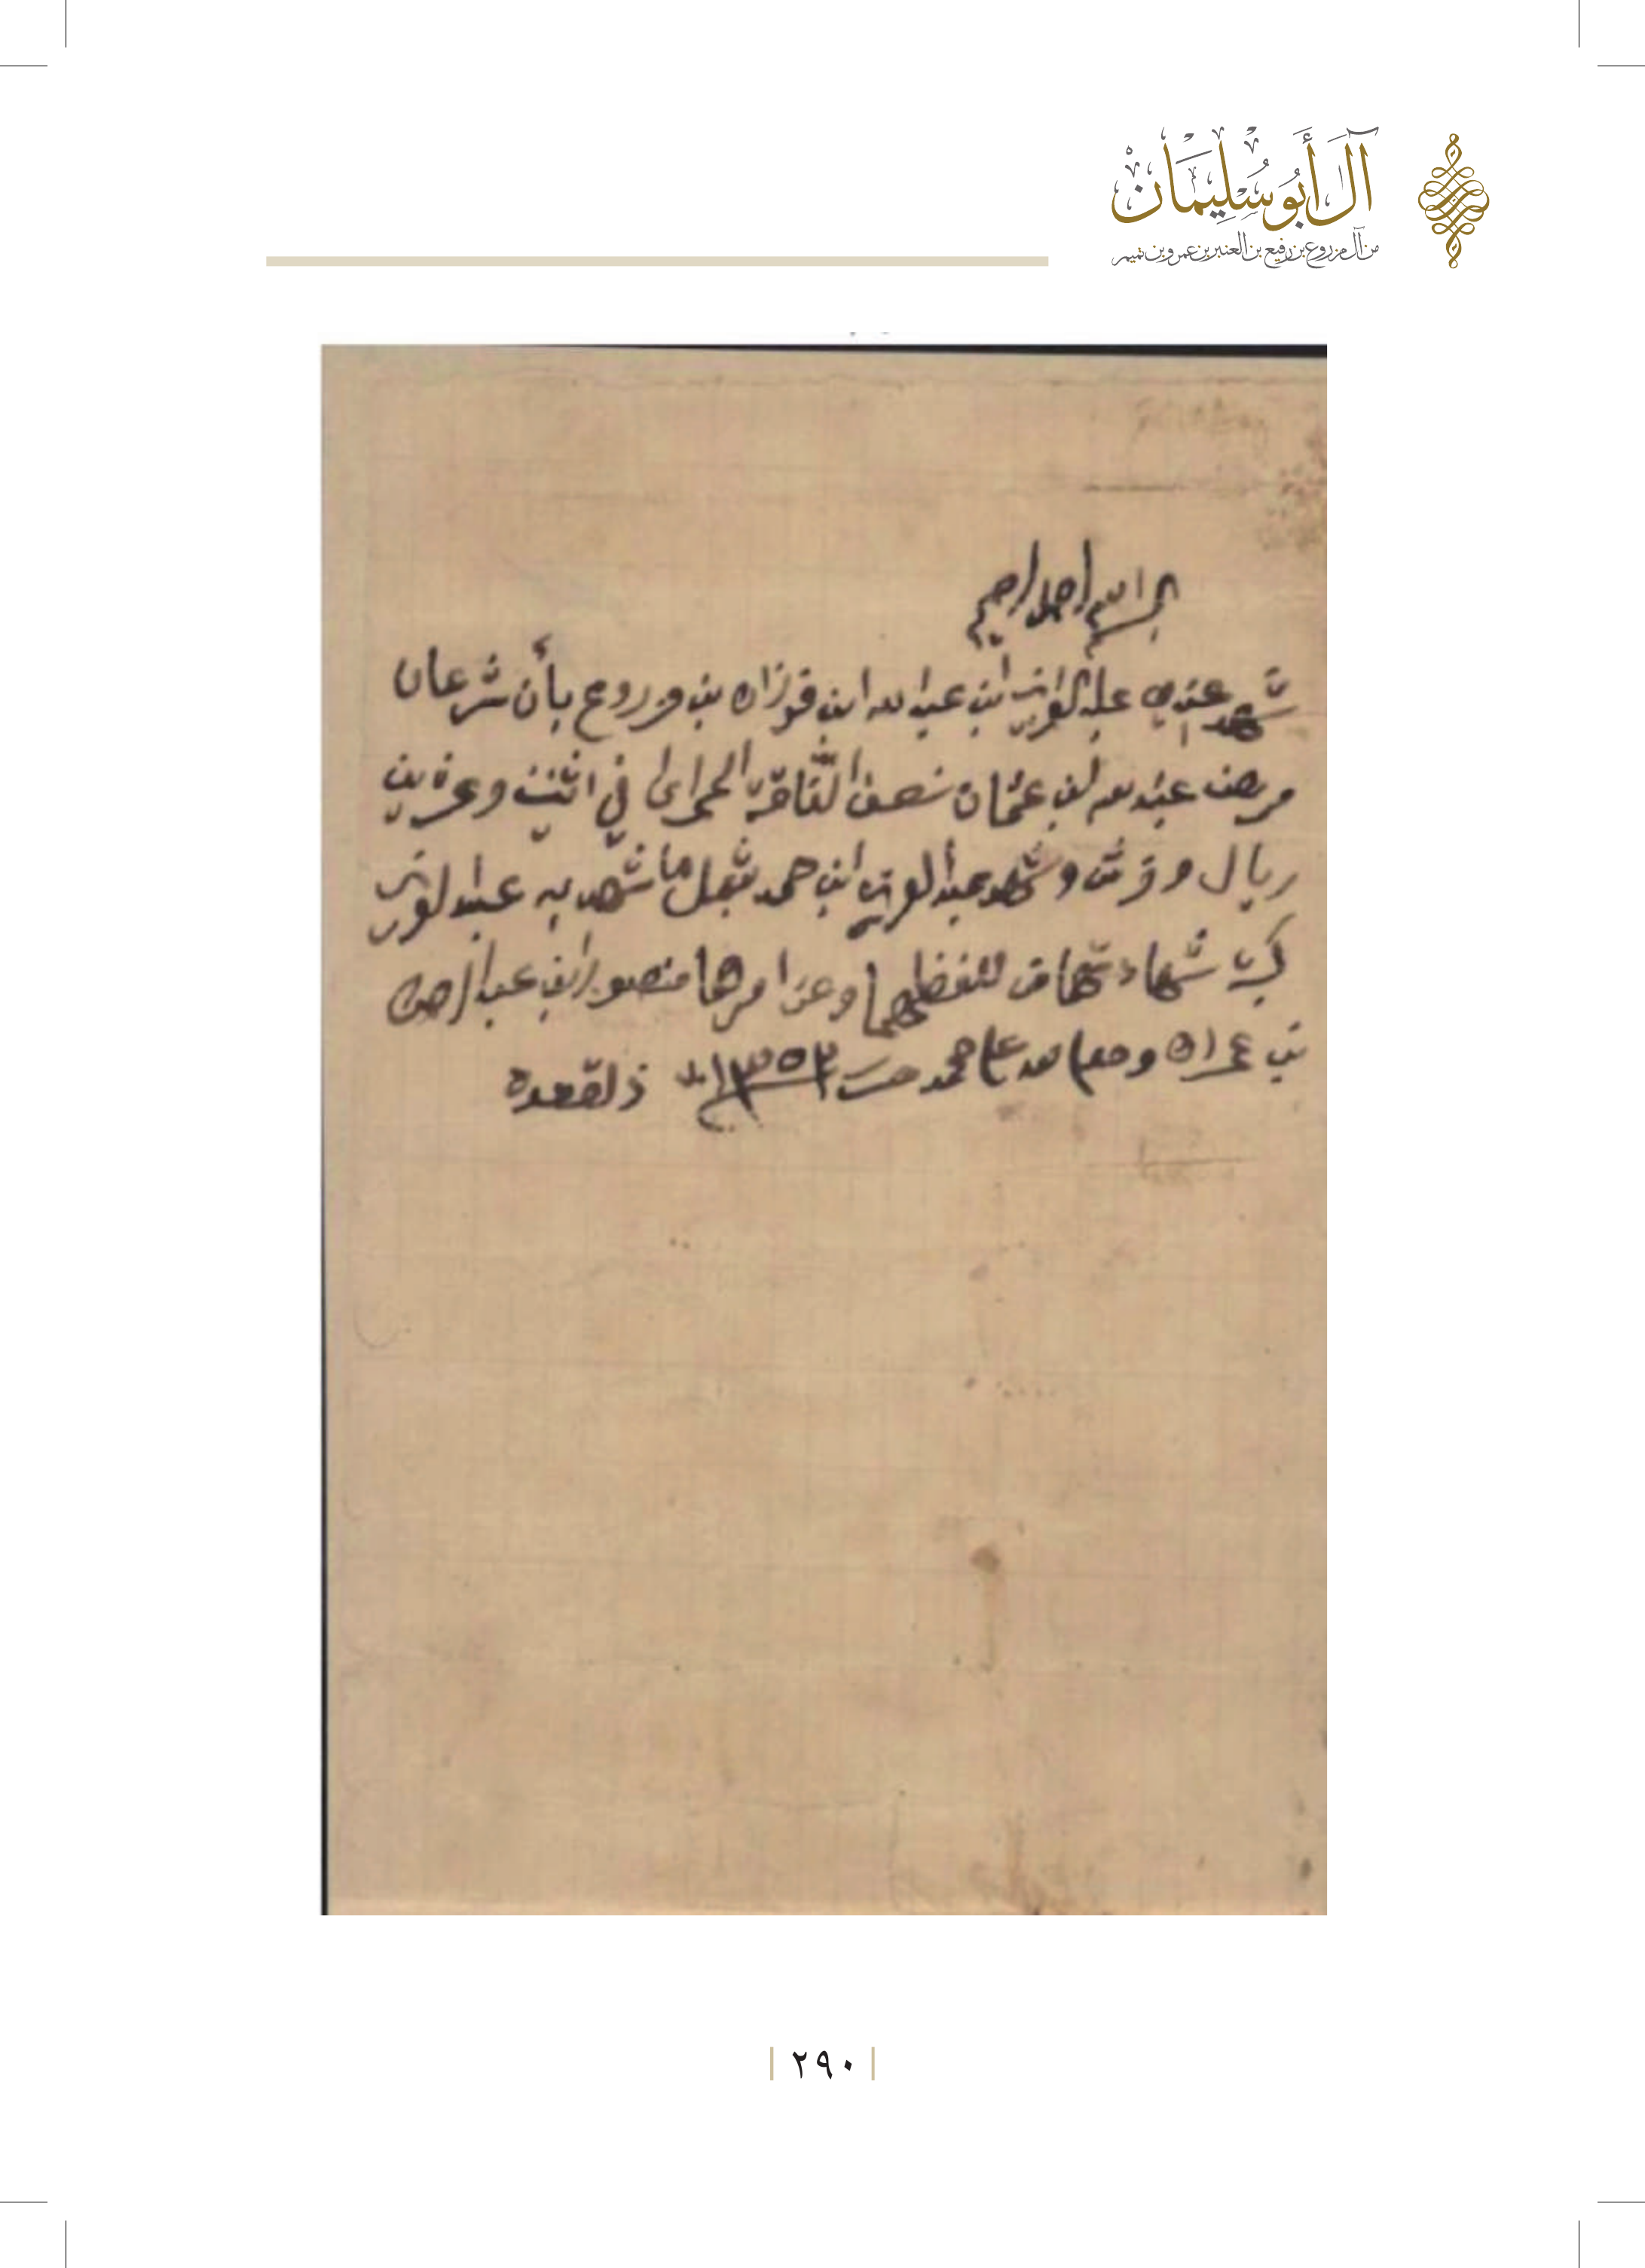 آل أبو سليمان
من آل مزروع بن رفيع بن العنبر بن عمرو بن تميم
بسم الله الرحمن الرحيم
شهد عندي عبد العزيز ابن عبد الله ابن فوزان بن مزروع بأن شرعان
عبد الله ابن عثمان نصف الناقة الحمراء في اثنين وعشرين
ريال وشهد عبد العزيز ابن حمد بمثل ما شهد به عبد العزيز
كتب شهادتهما من لفظهما وعن امرهما منصور ابن عبد الرحمن
بن عمران وصلى الله على محمد سنة ١٣٥٣ ذلقعده
٢٩٠